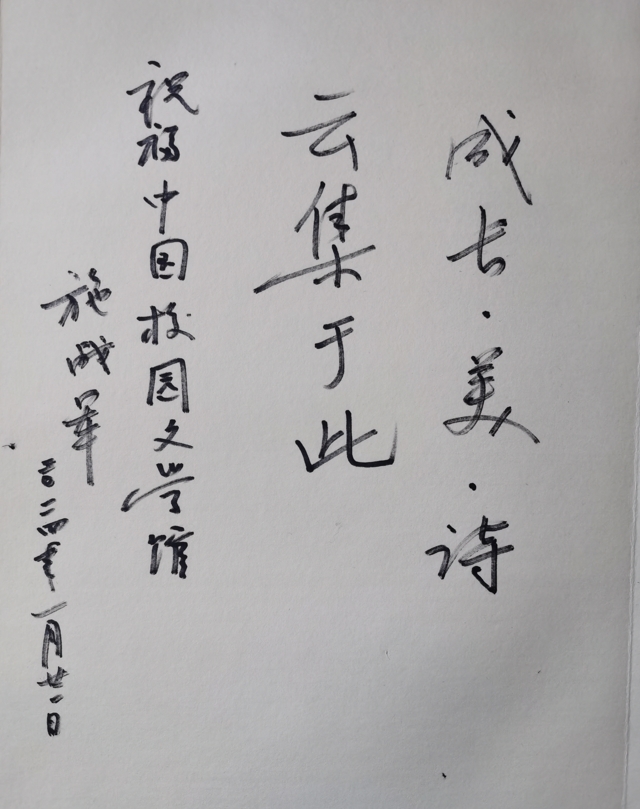 成长·美·诗
云集于此
祝福中国校园文学馆
施战军
二〇二四年一月廿一日